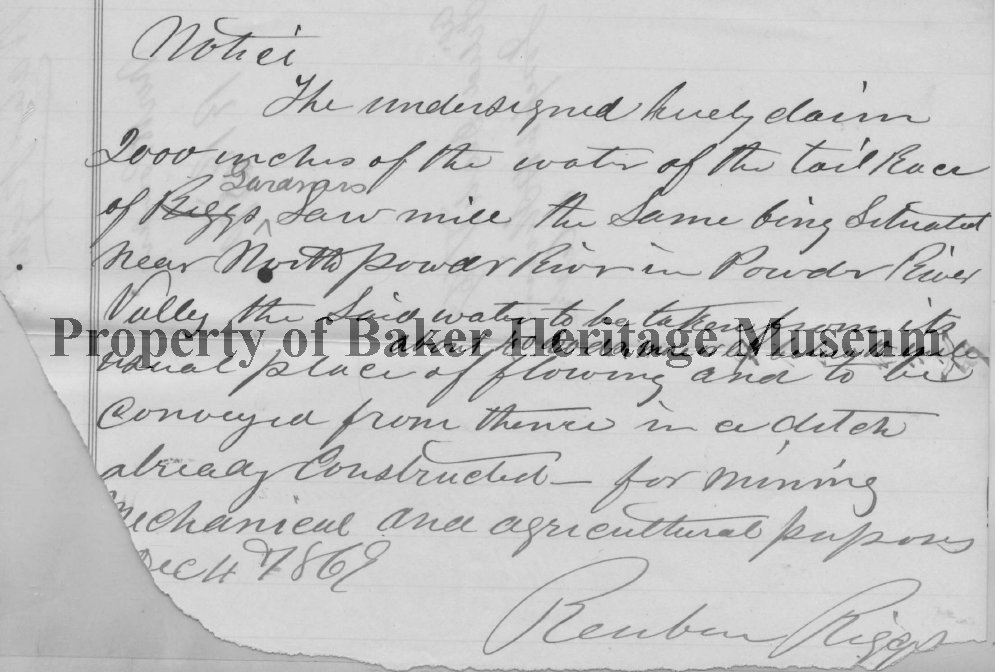 Notice
The undersigned hereby claim
2000 inches of the water of the tail Race
Gardners
of Riggs Saw mill the Same being Situated
near North powdr River in Powdr River
Vally the Said water to be taken from its
Property of Baker Heritage Museum
about
usual place of flowing and to be
Conveyed from thence in a ditch
already Constructed – for mining
mechanical and agricultural purposes
Dec 4th 1869
Reuben Riggs